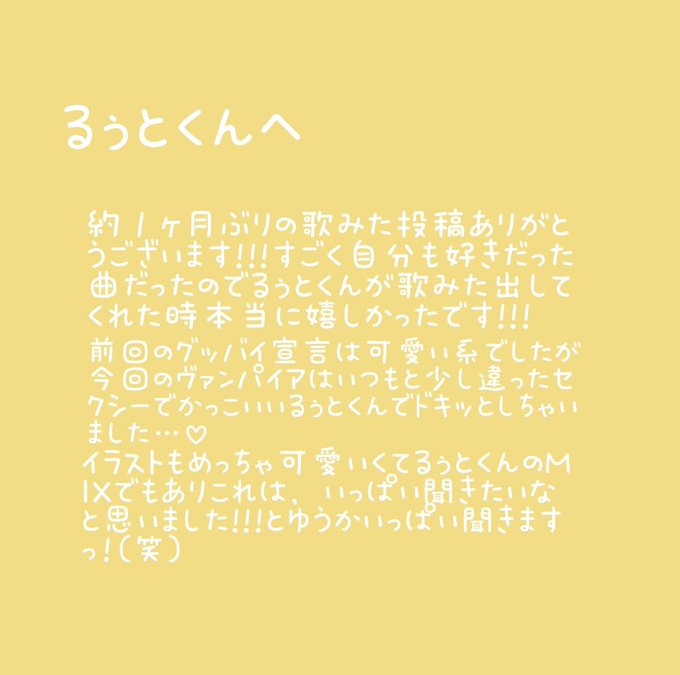 るぅとくんへ
約1ヶ月ぶりの歌みた投稿ありがと
うございます!!!すごく自分も好きだった
曲だったのでるぅとくんが歌みた出して
くれた時本当に嬉しかったです!!!
前回のグッバイ宣言は可愛い系でしたが
今回のヴァンパイアはいつもと少し違ったセ
クシーでかっこいいるぅとくんでドキッとしちゃい
ました…♡
イラストもめっちゃ可愛いくてるぅとくんのM
IXでもありこれは、いっぱい聞きたいな
と思いました!!!とゆうかいっぱい聞きます
っ!(笑)